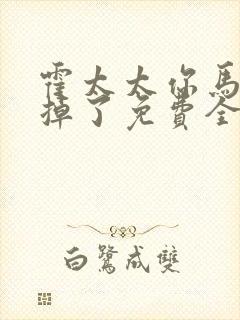 霍太太你馬
掉了免費全
白鷺成雙